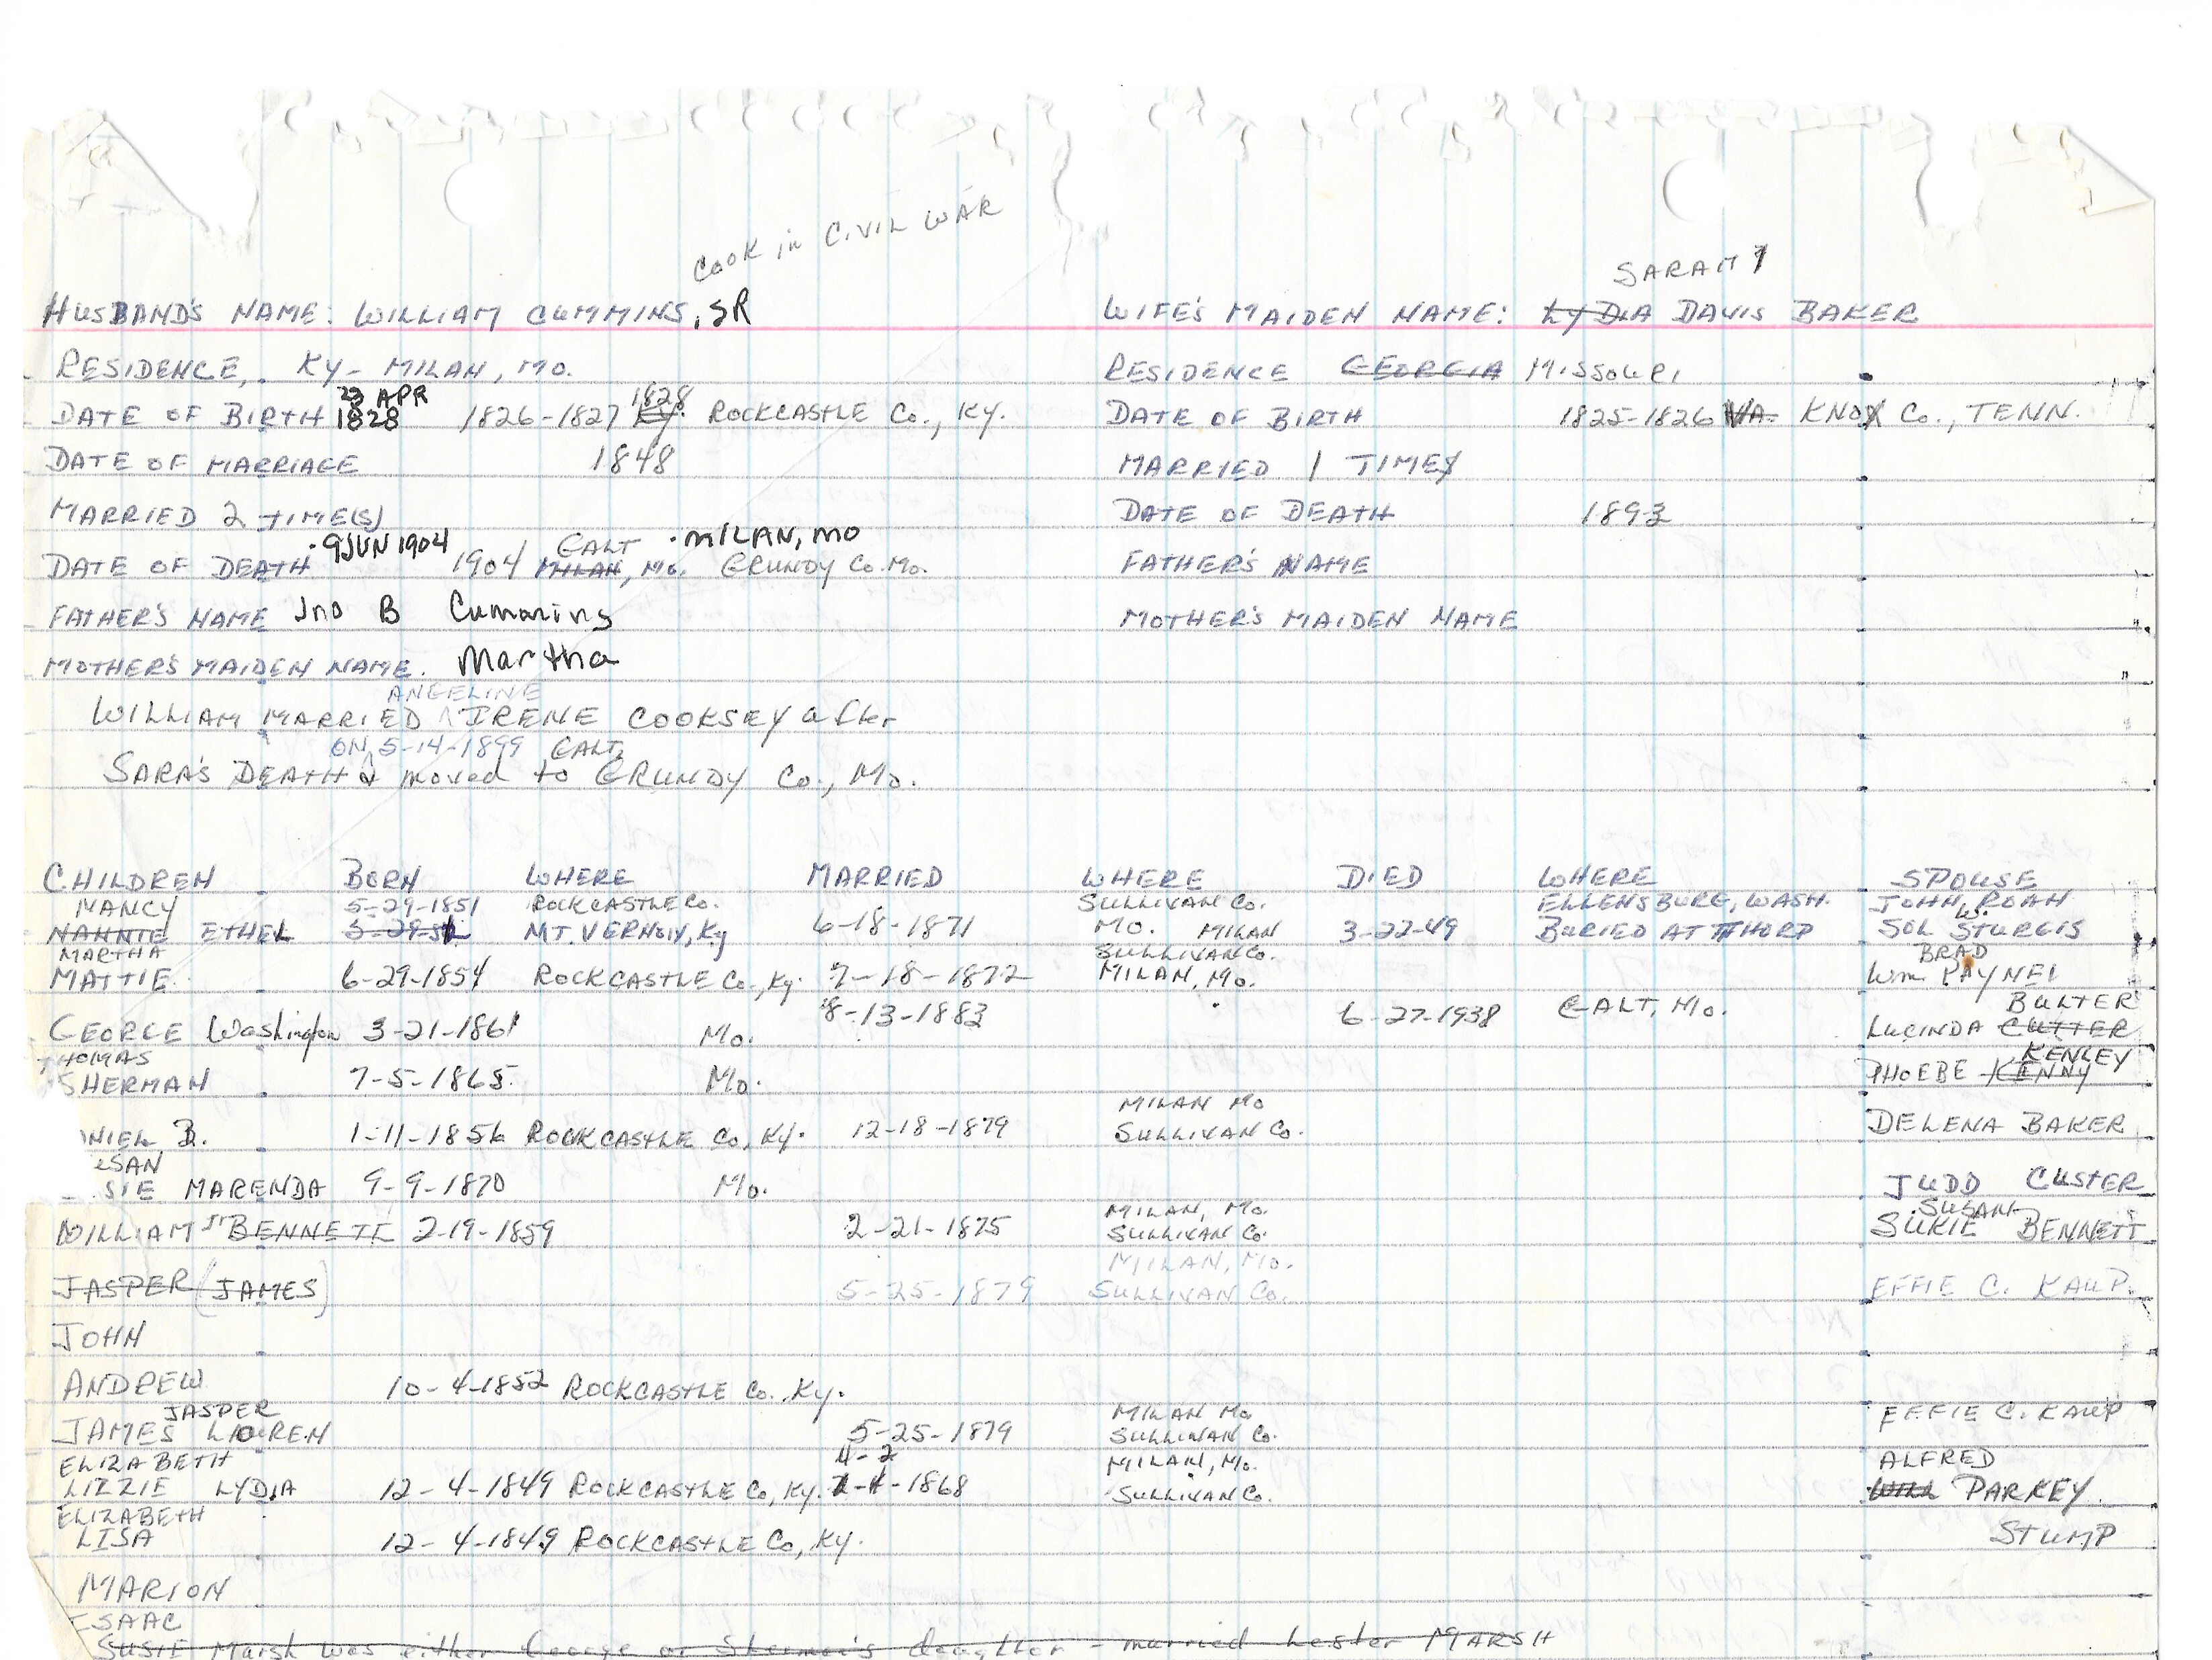 COOK in CIVIL WAR
SARAH
HUSBAND'S NAME: WILLIAM CUMMINS, SR WIFE'S MAIDEN NAME: LYDIA DAVIS BAKER
RESIDENCE, KY - MILAN, MO. RESIDENCE GEORGIA MISSOURI
23 APR 1828
DATE OF BIRTH 1828 1826-1827 KY. ROCKCASTLE CO., KY. DATE OF BIRTH 1825-1826 VA. KNOX CO., TENN.
DATE OF MARRIAGE 1848 MARRIED 1 TIMES
MARRIED 2 TIME(S) DATE OF DEATH 1893
9 JUN 1904 GALT MILAN, MO
DATE OF DEATH 1904 MILAN, MO. GRUNDY CO. MO. FATHER'S NAME
FATHER'S NAME Jno B Cummins MOTHER'S MAIDEN NAME
MOTHER'S MAIDEN NAME. Martha
ANGELINE
WILLIAM MARRIED ^ IRENE COOKSEY after
ON 5-14-1899 GALT,
SARA'S DEATH & moved to GRUNDY CO., MO.
CHILDREN BORN WHERE MARRIED WHERE DIED WHERE SPOUSE
NANCY 5-29-1851 ROCKCASTLE CO. SULLIVAN CO. ELLENSBURG, WASH. JOHN ROAH
W.
NANNIE ETHEL 3-29-51 MT. VERNON, KY 6-18-1871 MO. MILAN 3-22-49 BURIED AT THORP SOL STURGIS
MARTHA SULLIVAN CO. BRAD
MATTIE 6-29-1854 ROCKCASTLE CO., KY. 7-18-1872 MILAN, MO. Wm PAYNE
BUTLER
GEORGE Washington 3-21-1861 MO. 8-13-1883 6-27-1938 GALT, MO. LUCINDA CUTTER
THOMAS KENLEY
SHERMAN 7-5-1865. MO. PHOEBE KENNY
MILAN MO
NIEL B. 1-11-1856 ROCKCASTLE CO, KY. 12-18-1879 SULLIVAN CO. DELENA BAKER
SAN
SIE MARENDA 9-9-1870 MO. JUDD CUSTER
MILAN, MO. SUSAN
WILLIAM Jr BENNETT 2-19-1859 2-21-1875 SULLIVAN CO. SUKIE BENNETT
MILAN, MO.
JASPER (JAMES) 5-25-1879 SULLIVAN CO. EFFIE C. KAUP.
JOHN
ANDREW 10-4-1852 ROCKCASTLE CO., KY.
JASPER MILAN MO EFFIE C. KAUP
JAMES LOREN 5-25-1879 SULLIVAN CO.
ELIZABETH 4-2 MILAN, MO. ALFRED
LIZZIE LYDIA 12-4-1849 ROCKCASTLE CO, KY. 1868 SULLIVAN CO. WILL PARKEY
ELIZABETH
LISA 12-4-1849 ROCKCASTLE CO, KY. STUMP
MARION
ISAAC
SUSIE Marsh was either George or Sherman's daughter - married Lester MARSH